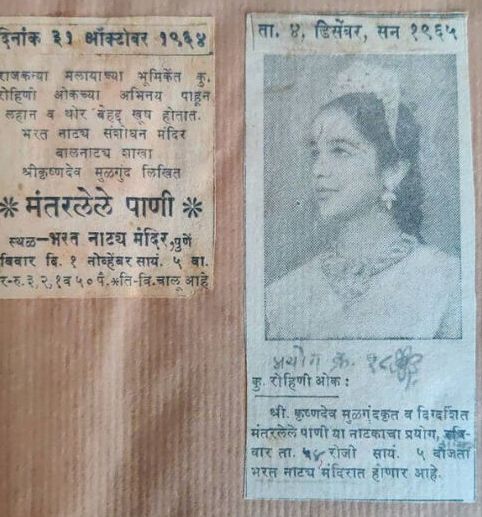 दिनांक ३१ ऑक्टोबर १९६४
राजकन्या मलायाच्या भूमिकेंत कु.
रोहिणी ओकच्या अभिनय पाहून
लहान व थोर बेहद्द खूष होतात.
भरत नाट्य संशोधन मंदिर
बालनाट्य शाखा
श्रीकृष्णदेव मुळगुंद लिखित
* मंतरलेले पाणी *
स्थळ–भरत नाट्य मंदिर, पुणें
विवार दि. १ नोव्हेंबर सायं. ५ वा.
र-रु. ३, २, १ व ५० पै.*ति-वि. चालू आहे
ता. ४, डिसेंबर, सन १९६५
प्रयोग क्र.
कु. रोहिणी ओक :
श्री. कृष्णदेव मुळगुंदकृत व दिग्दर्शित
मंतरलेले पाणी या नाटकाचा प्रयोग,
वार ता. रोजी सायं. ५ वाजतां
भरत नाट्य मंदिरात होणार आहे.